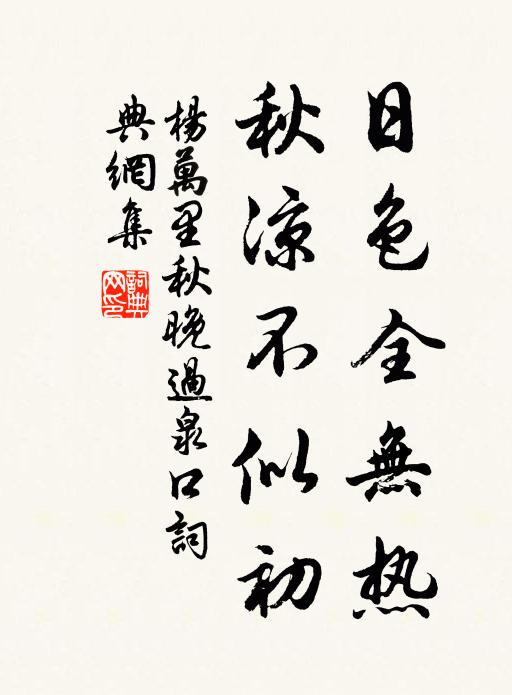 日色全無热
秋凉不似初
楊萬里秋晚過泉口詞
典網集
詞典網印